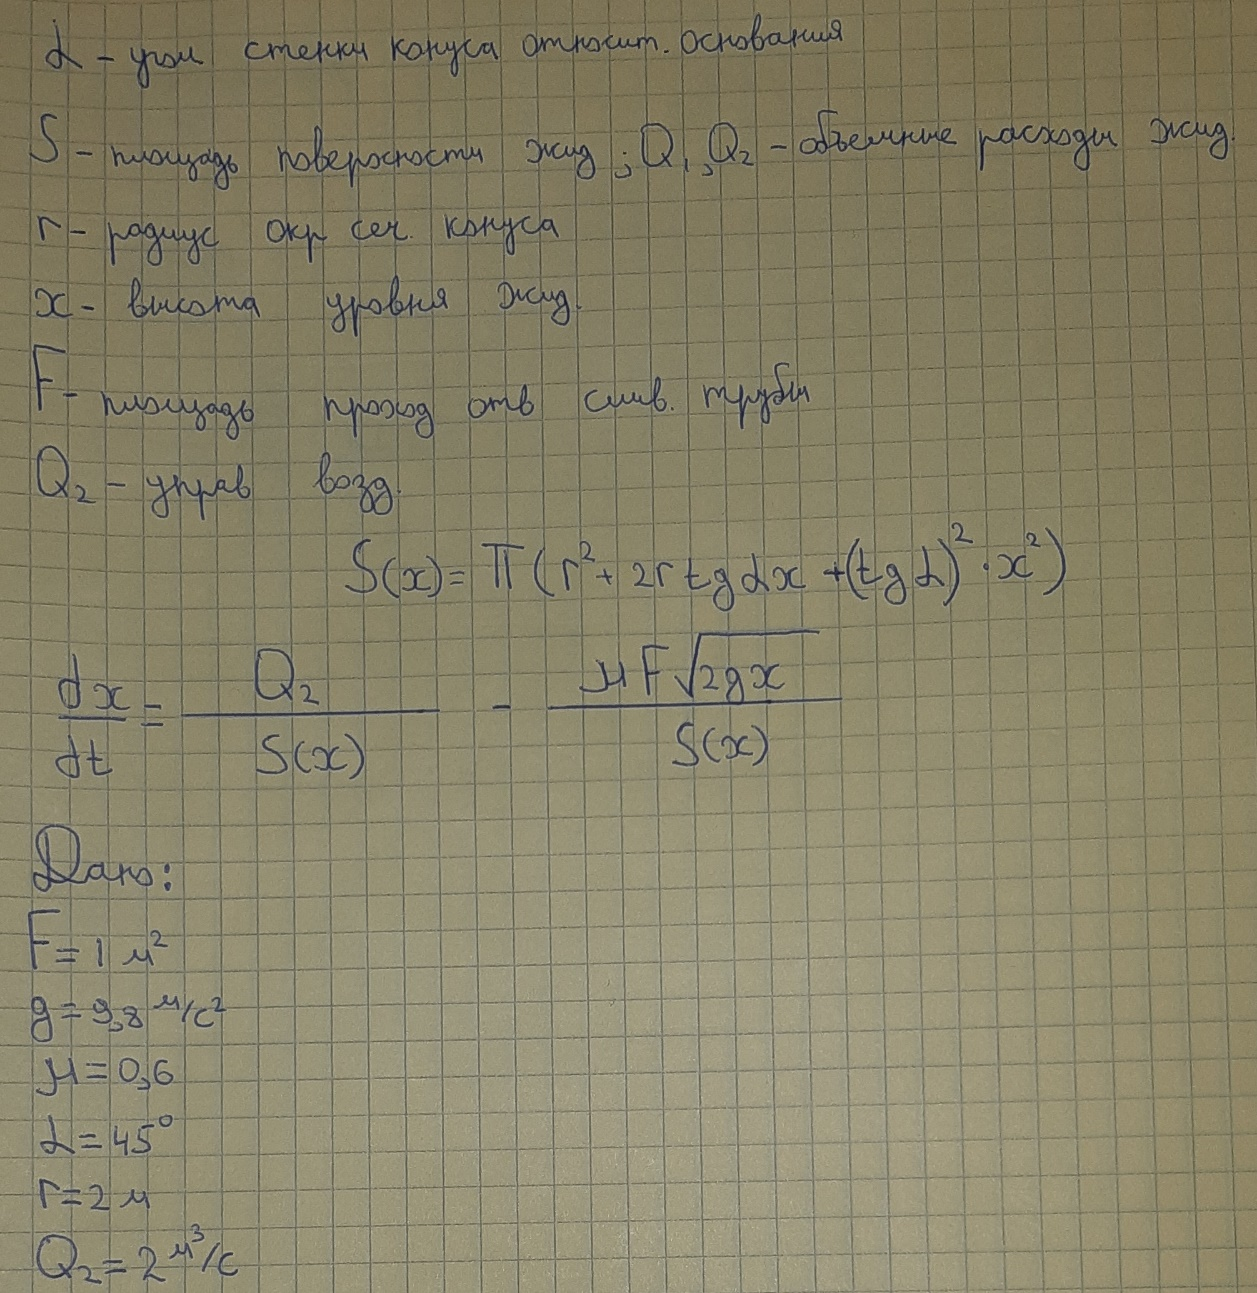 α - угол стенки конуса относит. основания
S - площадь поверхности жид ; Q₁, Q₂ - объемные расходы жид.
r - радиус окр сеч. конуса
x - высота уровня жид.
F - площадь проход отв слив. трубы
Q₂ - управ возд.
S(x) = π(r² + 2r tg αx + (tg α)² · x²)
dx/dt = Q₂/S(x) - μF√2gx/S(x)
Дано:
F = 1 м²
g = 9,8 м/с²
μ = 0,6
α = 45°
r = 2 м
Q₂ = 2 м³/с